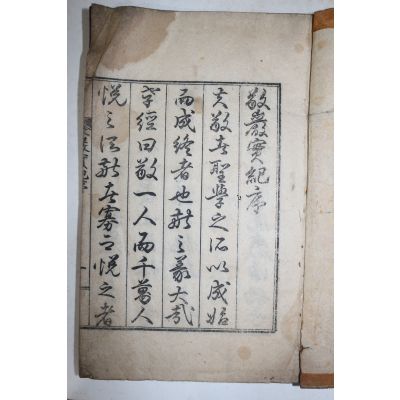 敬巖實紀序
夫敬者聖學之所以成始
而成終者也敬之義大哉
孝經曰敬一人而千萬人
悅之所敬者寡而悅之者